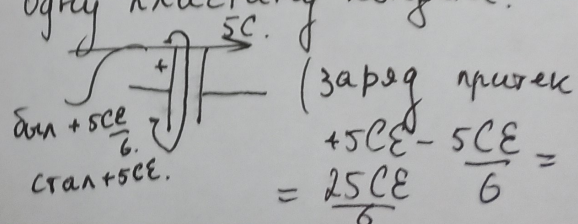 одну пластину
5C.
+
был + 5CƐ/6.
стал +5CƐ.
(заряд притек
+5CƐ - 5CƐ/6 =
= 25CƐ/6